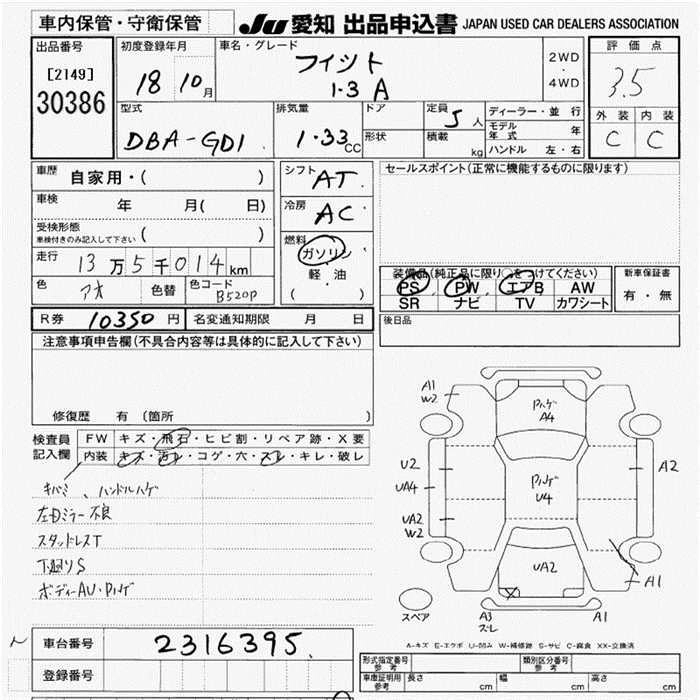 車内保管・守衛保管
JU 愛知 出品申込書 JAPAN USED CAR DEALERS ASSOCIATION
出品番号
[2149]
30386
初度登録年月
18 10月
車名・グレード
フィット
1・3 A
2WD
・
4WD
評価点
3.5
外装 内装
C C
型式
DBA-GD1
排気量
1・33 CC
ドア
形状
定員 5 人
積載 kg
ディーラー・並行
モデル年式 年
ハンドル 左・右
車歴 自家用・( )
車検 年 月( 日)
受検形態
車検付きのみ記入して下さい ( )
走行 13万5千014km
色 アオ 色替 色コード B520P
シフト AT
冷房 AC
燃料
ガソリン
軽・油
( )
セールスポイント(正常に機能するものに限ります)
装備品(純正品に限り○をつけてください)
PS PW エアB AW
SR ナビ TV カワシート
新車保証書
有・無
R券 10350 円 名変通知期限 月 日
後日品
注意事項申告欄(不具合内容等は具体的に記入して下さい)
修復歴 有 (箇所 )
検査員記入欄
FW キズ・飛石・ヒビ割・リペア跡・X要
内装 キズ・汚レ・コゲ・穴・スレ・キレ・破レ
キバミ、ハンドルハゲ
左ドミラー不良
スタッドレスT
下廻りS
ボディーAU・Pハゲ
A1
W2
Pハゲ
A4
U2
UA4
UA2
W2
Pハゲ
U4
A2
UA2
A1
スペア
A3
スレ
A1
A-キズ E-エクボ U-凹み W-補修跡 S-サビ C-腐食 XX-交換済
車台番号 2316395
登録番号
形式指定番号 参考
類別区分番号 参考
車庫証明用 参考 長さ cm 幅 cm 高さ cm